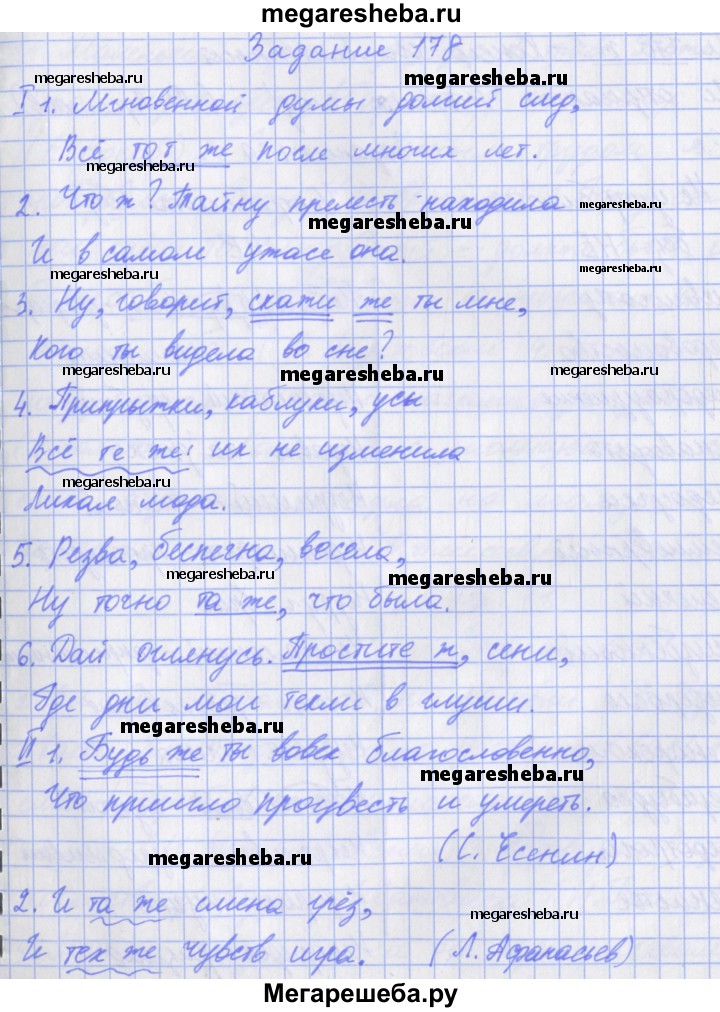 megaresheba.ru
Задание 178
megaresheba.ru megaresheba.ru
I 1. Мгновенной думы долгий след,
Всё тот же после многих лет.
megaresheba.ru
2. Что ж? Тайну прелесть находила
megaresheba.ru
megaresheba.ru
И в самом ужасе она.
megaresheba.ru megaresheba.ru
3. Ну, говорит, скажи же ты мне,
Кого ты видела во сне?
megaresheba.ru megaresheba.ru megaresheba.ru
4. Припрыжки, каблуки, усы
Всё те же: их не изменила
megaresheba.ru
Лихая мода.
5. Резва, беспечна, весела,
megaresheba.ru megaresheba.ru
Ну точно та же, что была.
6. Дай оглянусь. Простите ж, сени,
Где дни мои текли в глуши.
megaresheba.ru
II 1. Будь же ты вовек благословенно,
megaresheba.ru
Что пришло процвесть и умереть.
megaresheba.ru (С. Есенин)
2. И та же смена грёз,
megaresheba.ru
И тех же чувств игра. (Л. Афанасьев)
Мегарешеба.ру